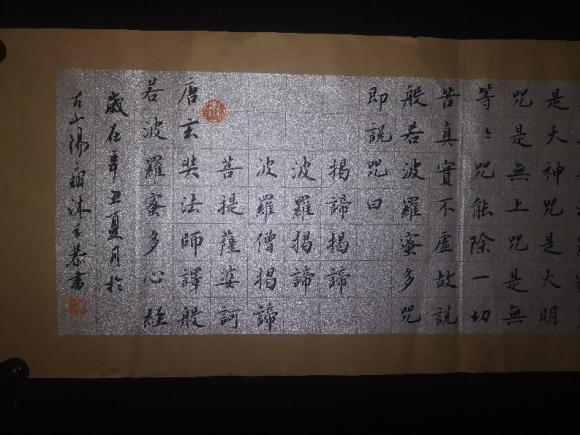 是大神咒是大明
咒是無上咒是無
等〻咒能除一切
苦真實不虛故説
般若波羅蜜多咒
即説咒曰
揭諦揭諦
波羅揭諦
波羅僧揭諦
菩提薩婆訶
唐玄奘法師譯般
若波羅蜜多心經
歲在辛丑夏月於
古山陽